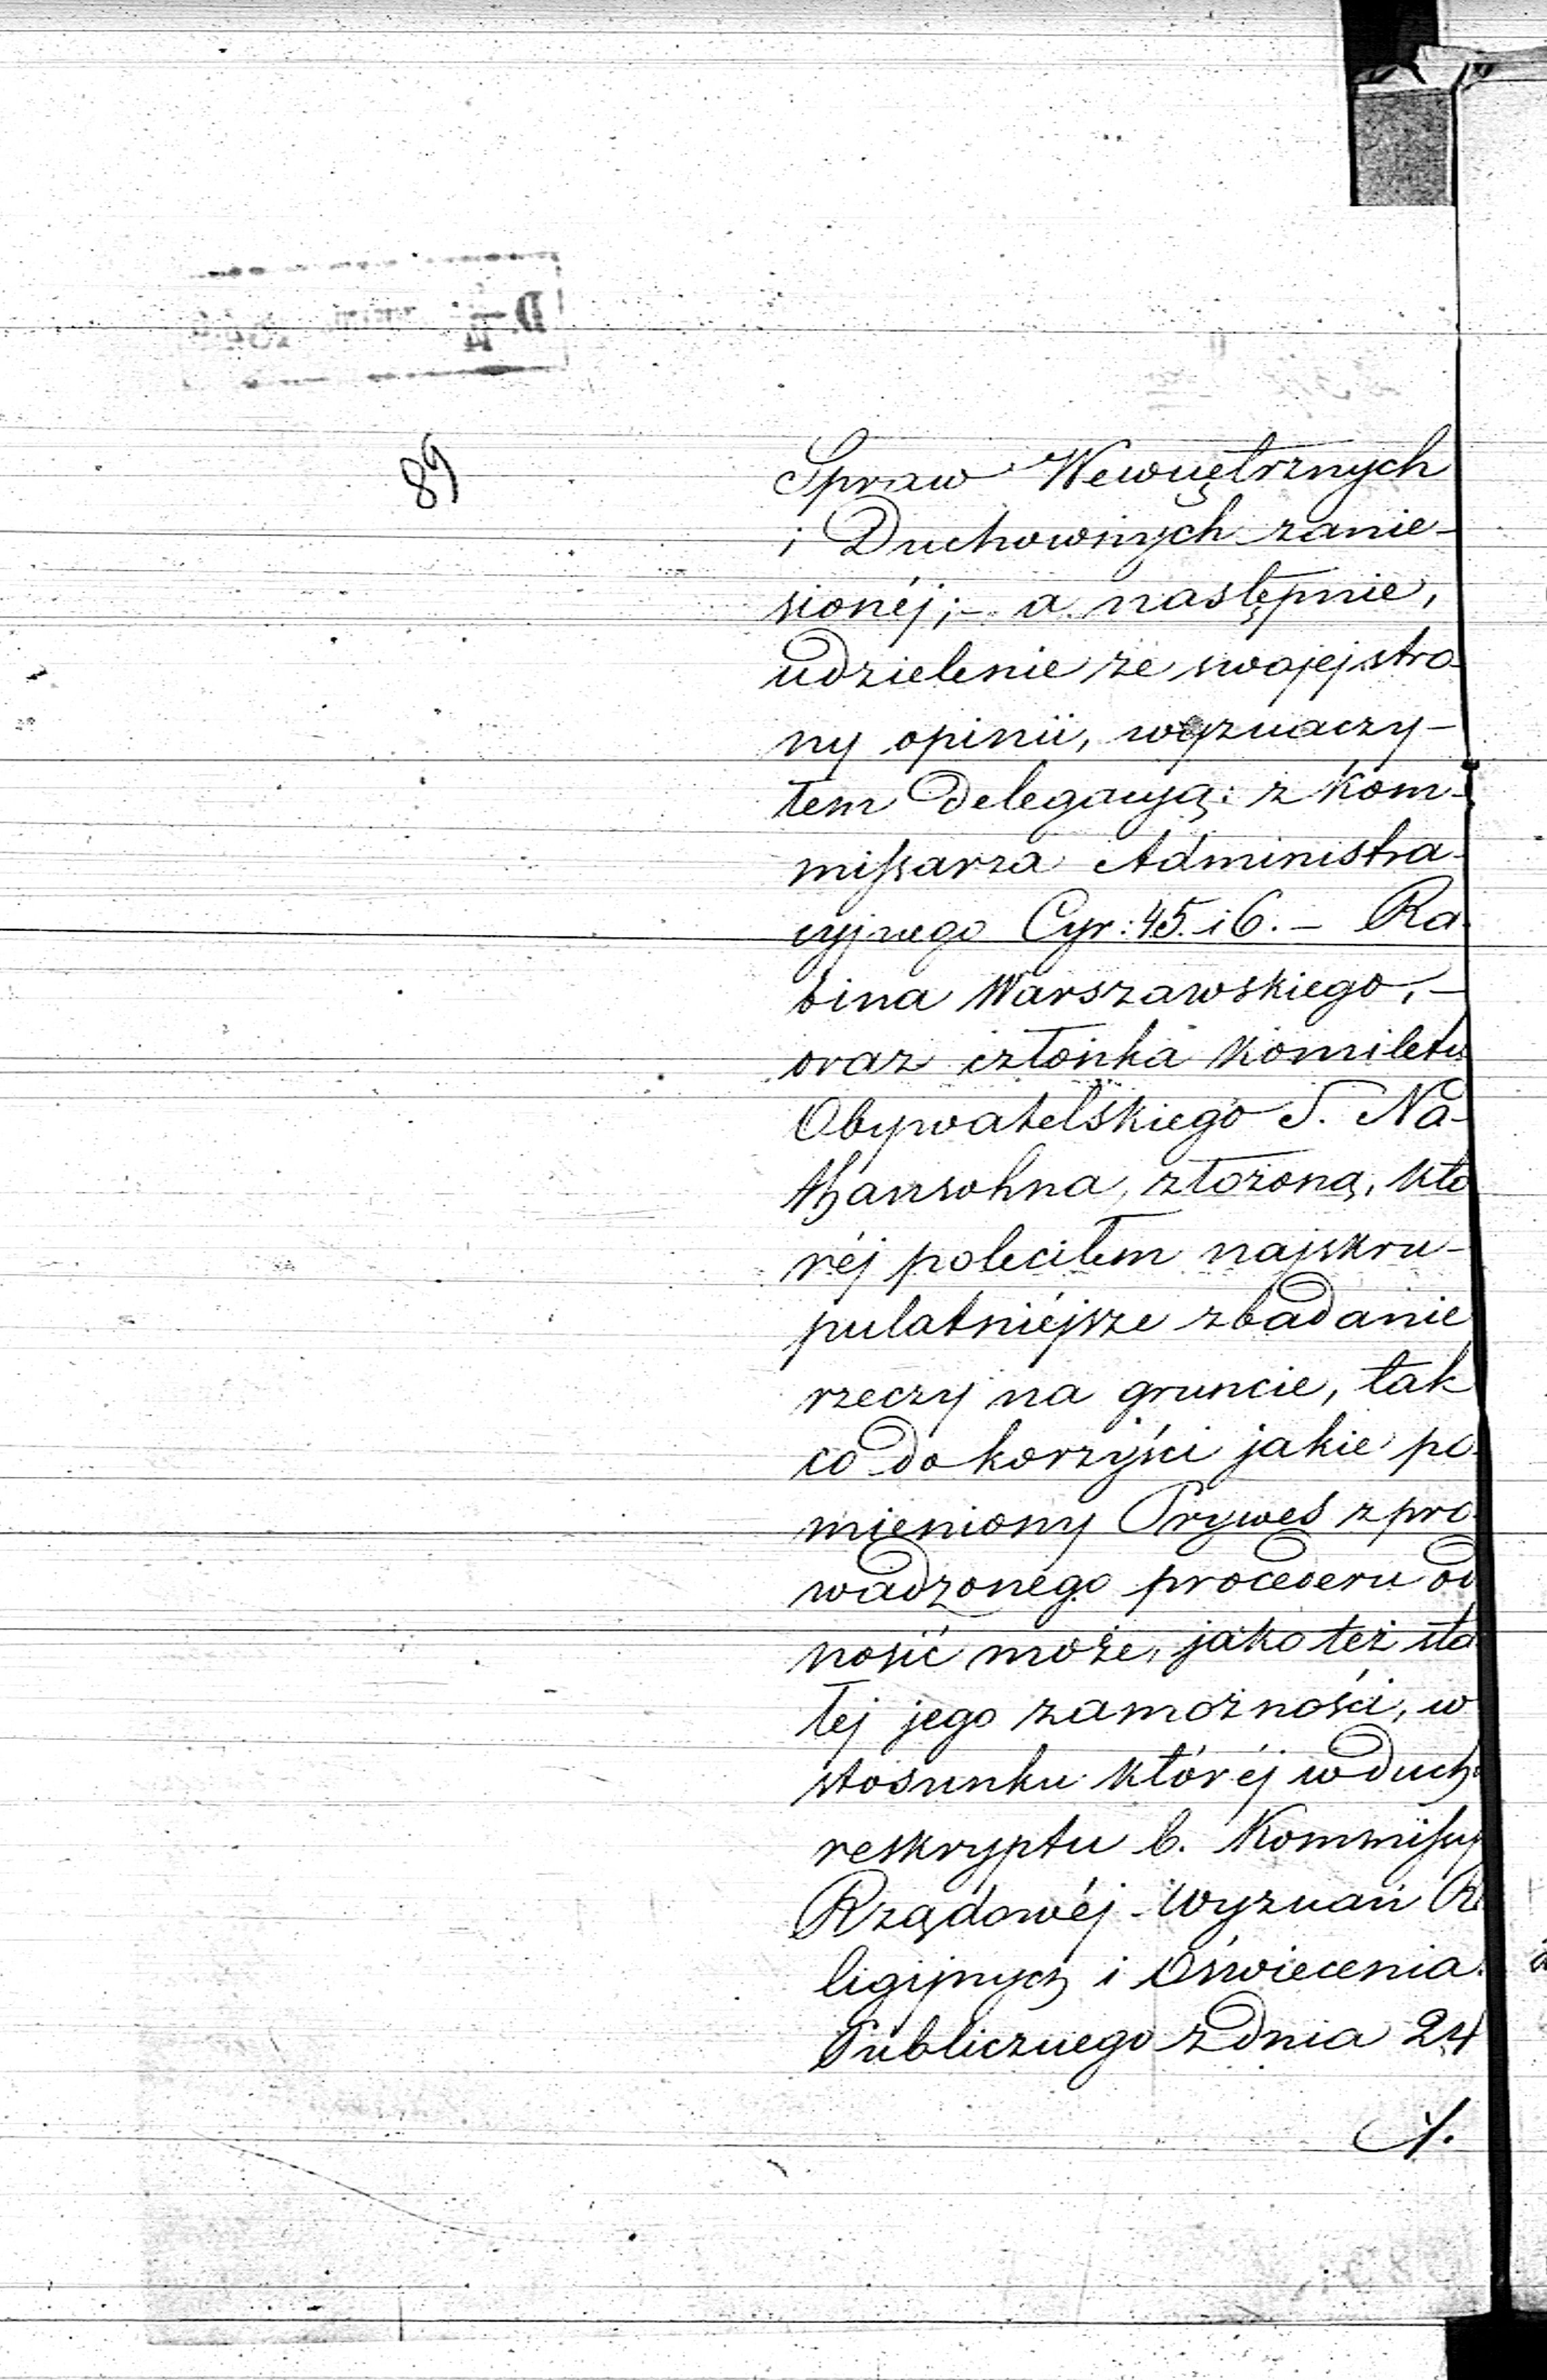 89
Spraw Wewnętrznych
i Duchownych zanie-
sionéj; – a następnie,
udzielenie ze swojej stro
ny opinii, wyznaczy-
łem Delegacyą: z Kom-
missarza Administra-
cyjnego Cyr: 45. i 6. – Ra-
bina Warszawskiego, –
oraz członka Komitetu
Obywatelskiego S. Na-
thansohna, złożoną, któ
réj poleciłem najskru-
pulatniéjsze zbadanie
rzeczy na gruncie, tak
co do korzyści jakie po-
mieniony Prywes z pro-
wadzonego procederu od
nosić może, jako też sta
łej jego zamożności, w
stosunku któréj w duchu
reskryptu b. Kommissyi
Rządowéj Wyznań Re
ligijnych i Oświecenia
Publicznego z dnia 24
./.